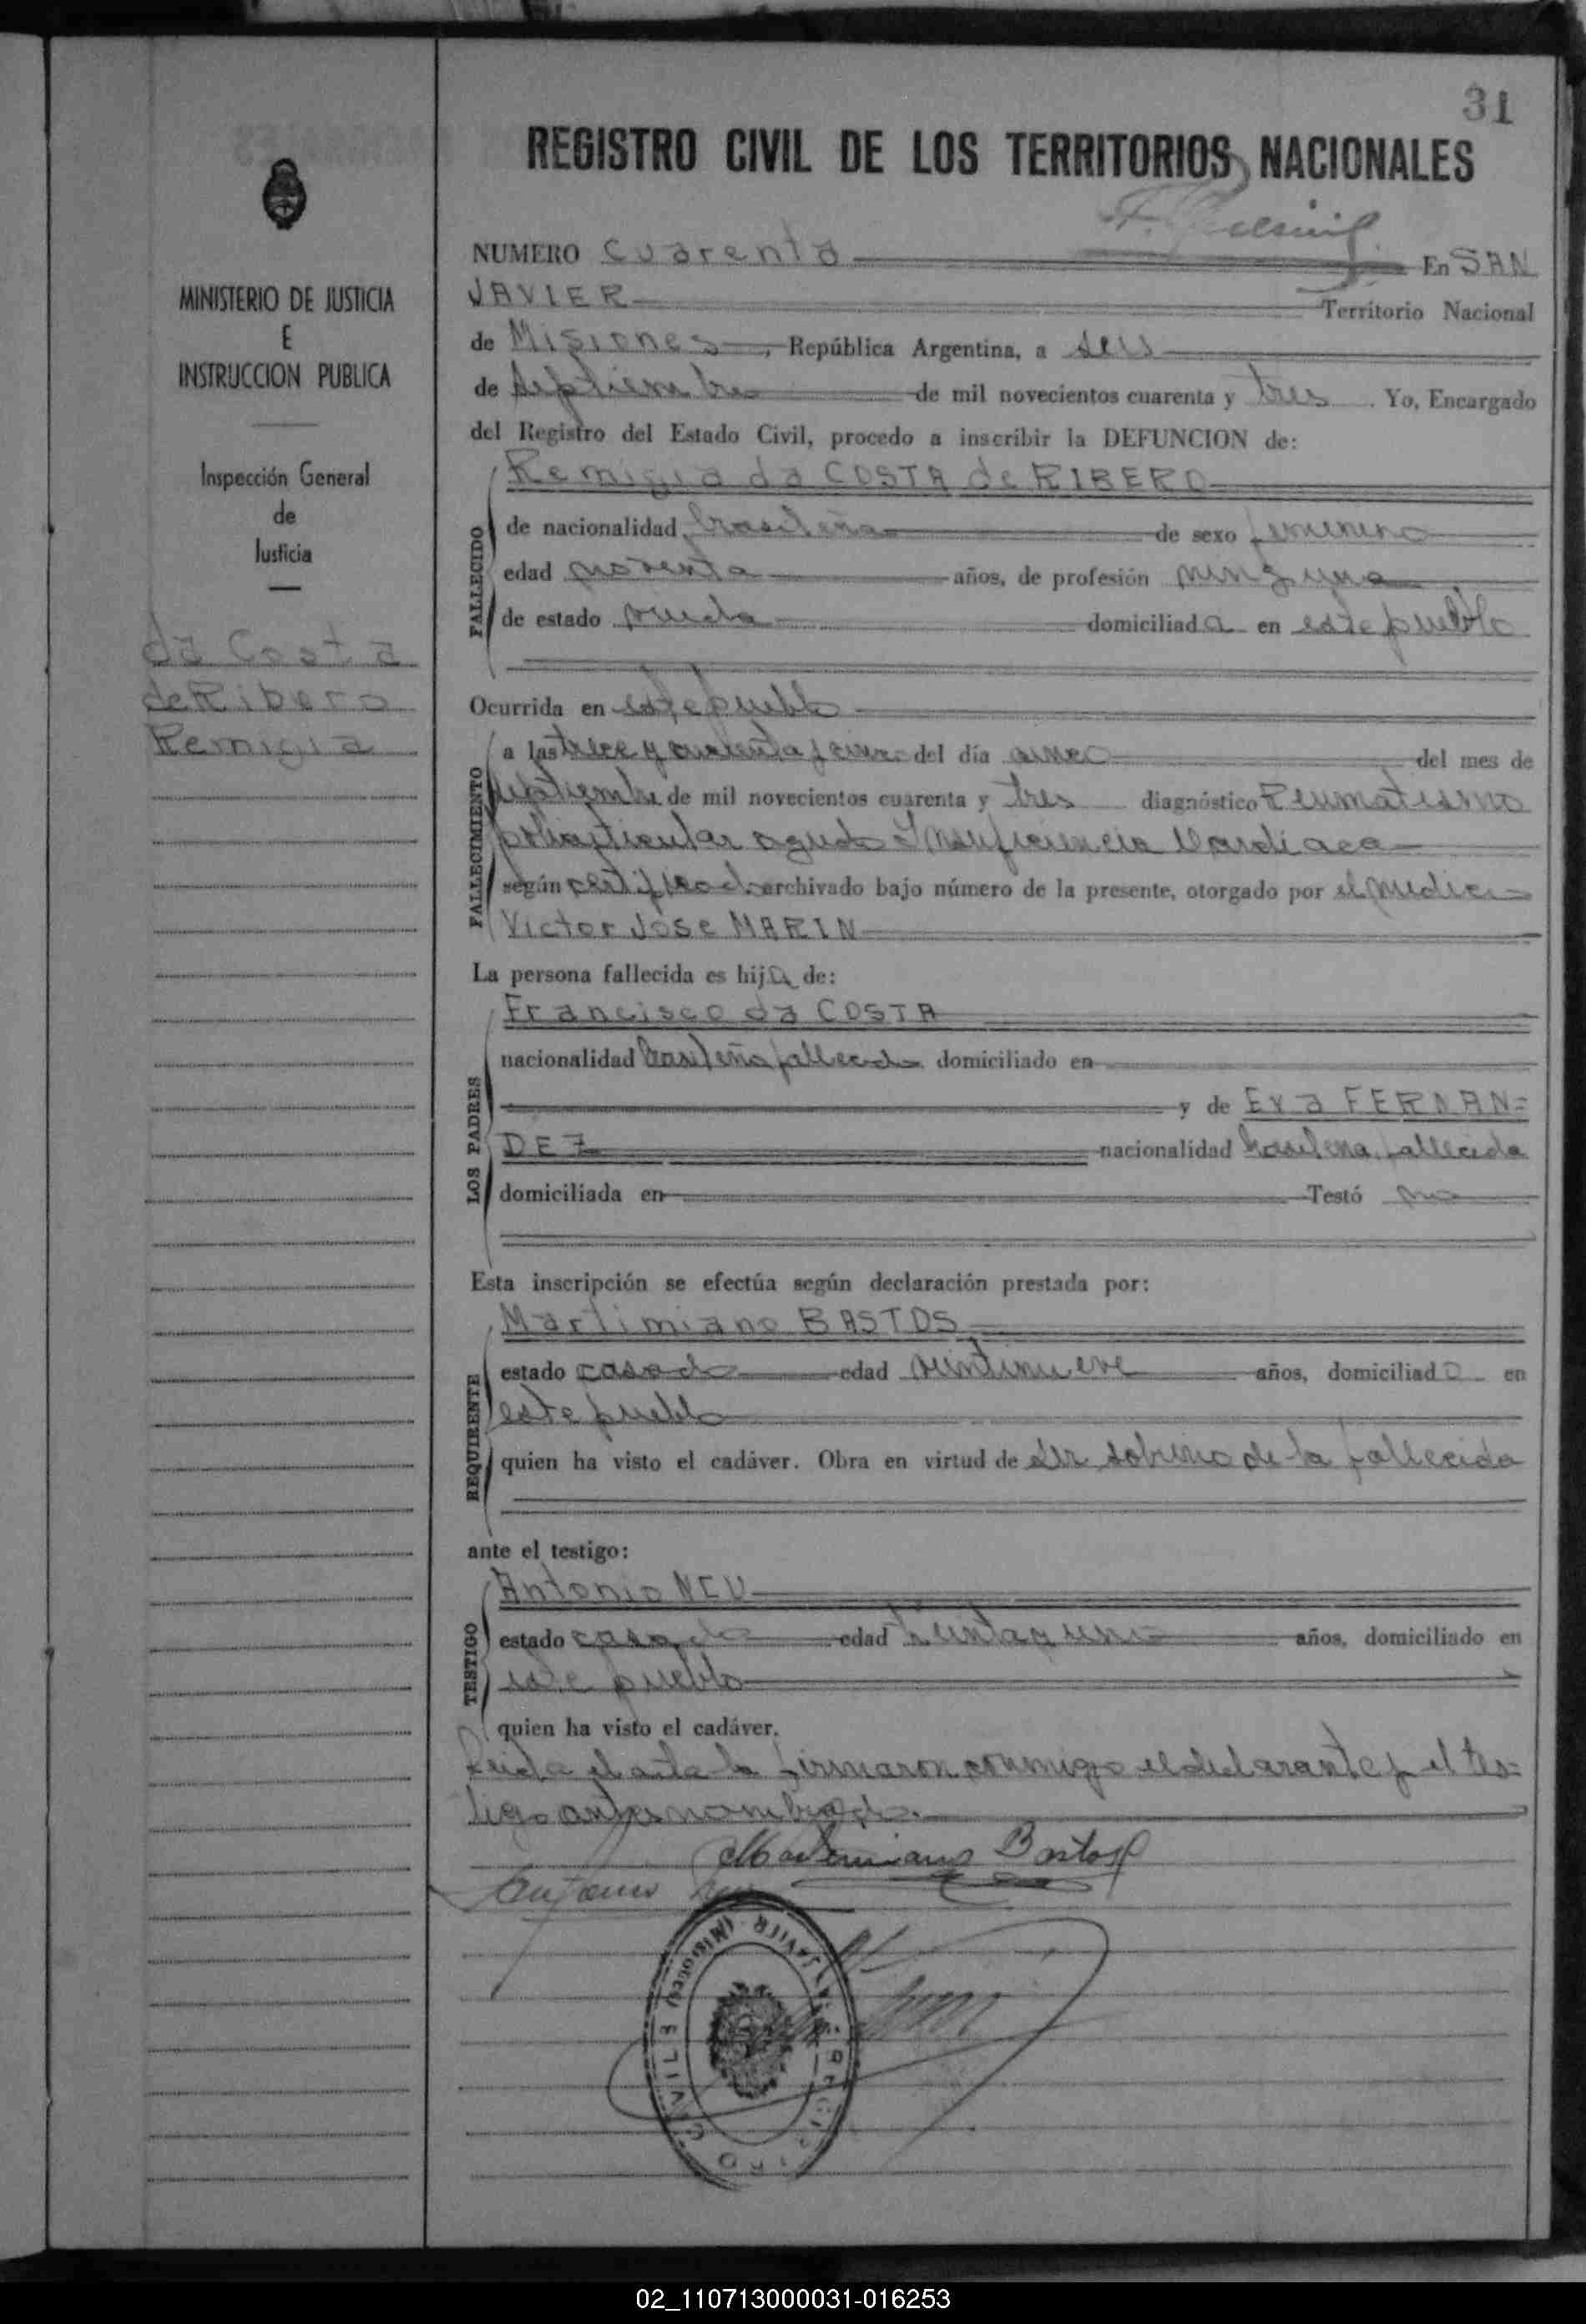 31
REGISTRO CIVIL DE LOS TERRITORIOS NACIONALES
MINISTERIO DE JUSTICIA
E
INSTRUCCION PUBLICA
Inspección General
de
Justicia
da Costa
de Ribero
Remigia
NUMERO Cuarenta En SAN
JAVIER Territorio Nacional
de Misiones, República Argentina, a seis
de septiembre de mil novecientos cuarenta y tres. Yo, Encargado
del Registro del Estado Civil, procedo a inscribir la DEFUNCION de:
Remigia da COSTA de RIBERO
FALLECIDO
de nacionalidad brasileña de sexo femenino
edad noventa años, de profesión ninguna
de estado viuda domiciliada en este pueblo
Ocurrida en este pueblo
FALLECIMIENTO
a las trece y cuarenta y cinco del día cinco del mes de
septiembre de mil novecientos cuarenta y tres diagnóstico Reumatismo
poliarticular agudo Insuficiencia Cardiaca
según certificado archivado bajo número de la presente, otorgado por el medico
Victor José MARIN
La persona fallecida es hija de:
Francisco da COSTA
LOS PADRES
nacionalidad brasileña fallecido domiciliado en
y de Eva FERNAN=
DEZ nacionalidad brasilena fallecida
domiciliada en Testó no
Esta inscripción se efectúa según declaración prestada por:
Martimiano BASTOS
REQUIRENTE
estado casado edad veintinueve años, domiciliado en
este pueblo
quien ha visto el cadáver. Obra en virtud de ser sobrino de la fallecida
ante el testigo:
Antonio NEU
TESTIGO
estado casado edad treinta y uno años, domiciliado en
este pueblo
quien ha visto el cadáver.
Leida el acta la firmaron conmigo el declarante y el tes=
tigo antes nombrado.
Martimiano Bastos
Antonio Neu
REGISTRO CIVIL SAN JAVIER (Misiones)
02_110713000031-016253